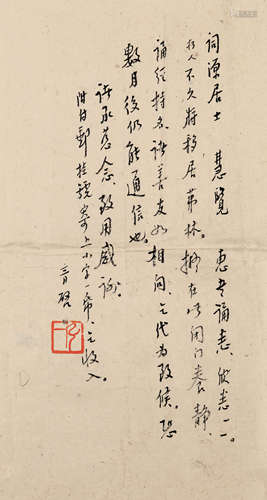 詞源居士 慧覽 惠書誦悉 欣悉一一。
朽人不久將移居茀林。擬在此閉門養靜
誦經持名。諸善友如相問,乞代為致候。恐
數月後仍能通信也。
許承慈念,致用感謝。
郵挂號寄上小字一帋,乞收入。
音啓
弘一